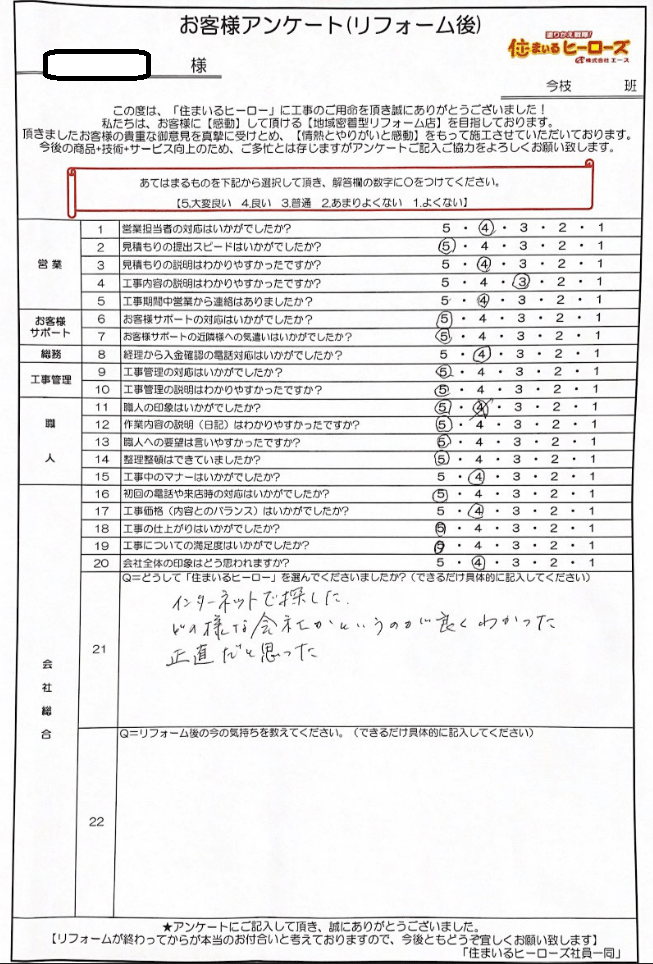 お客様アンケート(リフォーム後)
塗りかえ戦隊!
住まいるヒーローズ
株式会社エース
様
今枝 班
この度は、「住まいるヒーロー」に工事のご用命を頂き誠にありがとうございました!
私たちは、お客様に【感動】して頂ける【地域密着型リフォーム店】を目指しております。
頂きましたお客様の貴重な御意見を真摯に受けとめ、【情熱とやりがいと感動】をもって施工させていただいております。
今後の商品+技術+サービス向上のため、ご多忙とは存じますがアンケートご記入ご協力をよろしくお願い致します。
あてはまるものを下記から選択して頂き、解答欄の数字に○をつけてください。
【5.大変良い 4.良い 3.普通 2.あまりよくない 1.よくない】
営業
1 営業担当者の対応はいかがでしたか? 5・4・3・2・1
2 見積もりの提出スピードはいかがでしたか? 5・4・3・2・1
3 見積もりの説明はわかりやすかったですか? 5・4・3・2・1
4 工事内容の説明はわかりやすかったですか? 5・4・3・2・1
5 工事期間中営業から連絡はありましたか? 5・4・3・2・1
お客様サポート
6 お客様サポートの対応はいかがでしたか? 5・4・3・2・1
7 お客様サポートの近隣様への気遣いはいかがでしたか? 5・4・3・2・1
総務
8 経理から入金確認の電話対応はいかがでしたか? 5・4・3・2・1
工事管理
9 工事管理の対応はいかがでしたか? 5・4・3・2・1
10 工事管理の説明はわかりやすかったですか? 5・4・3・2・1
職人
11 職人の印象はいかがでしたか? 5・4・3・2・1
12 作業内容の説明(日記)はわかりやすかったですか? 5・4・3・2・1
13 職人への要望は言いやすかったですか? 5・4・3・2・1
14 整理整頓はできていましたか? 5・4・3・2・1
15 工事中のマナーはいかがでしたか? 5・4・3・2・1
会社総合
16 初回の電話や来店時の対応はいかがでしたか? 5・4・3・2・1
17 工事価格(内容とのバランス)はいかがでしたか? 5・4・3・2・1
18 工事の仕上がりはいかがでしたか? 5・4・3・2・1
19 工事についての満足度はいかがでしたか? 5・4・3・2・1
20 会社全体の印象はどう思われますか? 5・4・3・2・1
21 Q=どうして「住まいるヒーロー」を選んでくださいましたか?(できるだけ具体的に記入してください)
インターネットで探した.
どの様な会社かというのが良くわかった
正直だと思った
22 Q=リフォーム後の今の気持ちを教えてください。(できるだけ具体的に記入してください)
★アンケートにご記入して頂き、誠にありがとうございました。
【リフォームが終わってからが本当のお付合いと考えておりますので、今後ともどうぞ宜しくお願い致します】
「住まいるヒーローズ社員一同」